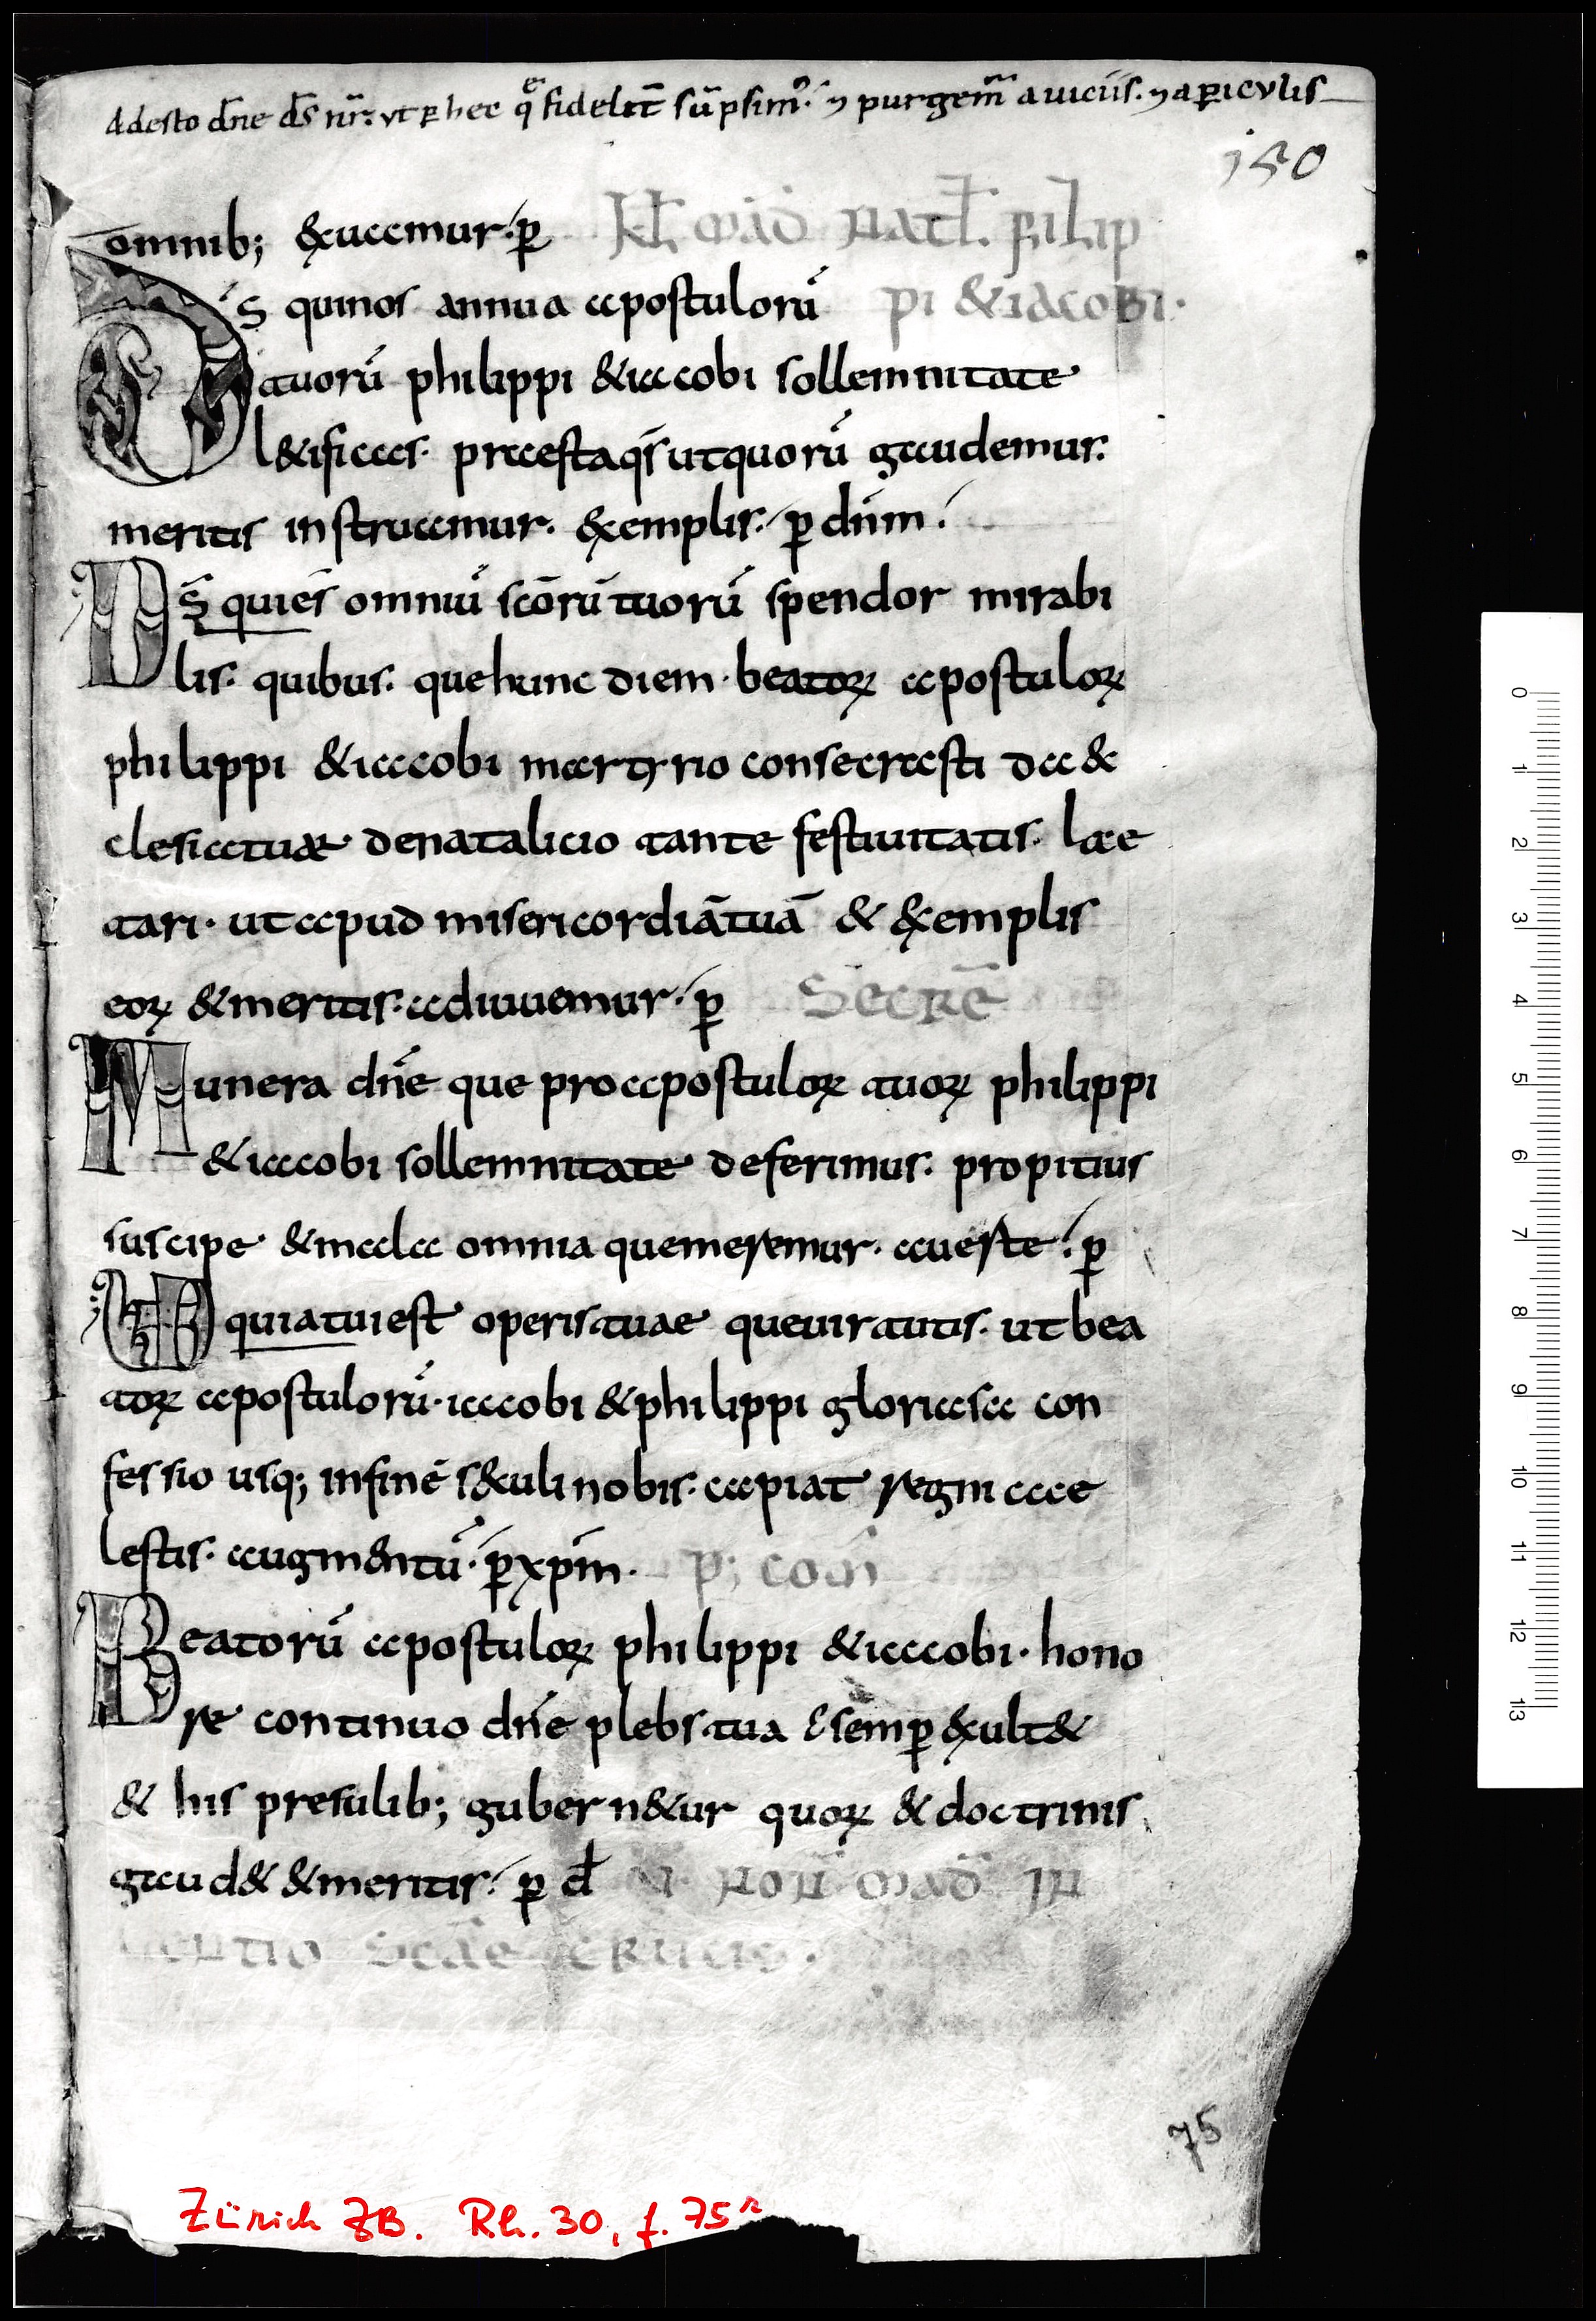 Adesto dn̄e ds̄ nr̄. ut ꝑ hec qͤ fidelit̄ sūpsimꝰ. ⁊ purgem̄ a uiciis. ⁊ a ꝑiculis
150
omnib; &xuamur. ꝑ Kł mad̄ natł. filip
D s̄ qui nos annua apostulorū pi & iacobi.
tuorū philippi & iacobi sollemnitate
l&ificas. praesta qs̄ ut quorū gaudemur.
meritis instruamur. &xemplis. ꝑ dn̄m.
Ds̄ qui es omniū sc̄orū tuorū spendor mirabi
lis. quibus. que hunc diem beatoꝝ apostuloꝝ
philippi & iacobi martyrio consecrasti da &
clesia tuae denatalicio tante festiuitatis. lae
tari. ut apud misericordiā tuā & &xemplis
eoꝝ & meritis. adiuuemur. ꝑ Secrē
Munera dn̄e que pro apostuloꝝ tuoꝝ philippi
& iacobi sollemnitate deferimus. propitius
suscipe & mala omnia que meremur. aueste. ꝑ
UD quia tui est operis tuae que uirtutis. ut bea
toꝝ apostulorū. iacobi & philippi gloriasa con
fessio usq; in finē s&culi nobis. capiat regni cae
lestis. augmentū. ꝑ xp̄m. p; com̄
Beatorū apostuloꝝ philippi & iacobi. hono
re continuo dn̄e plebs tua & semꝑ &xult&
& his presulib; gubern&ur quoꝝ & doctrinis
gaud& & meritis. ꝑ d̄ V. non̄ mad̄ In
uentio scāe crucis.
75
Zürich ZB. Rh. 30, f. 75r